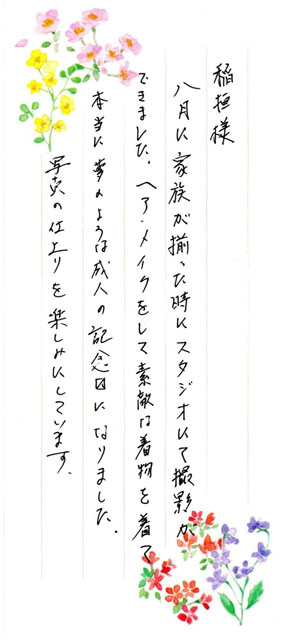 稲垣様
八月に家族が揃った時にスタジオにて撮影が
できました。ヘア・メイクをして素敵な着物を着て
本当に夢のような成人の記念日になりました。
写真の仕上りを楽しみにしています。